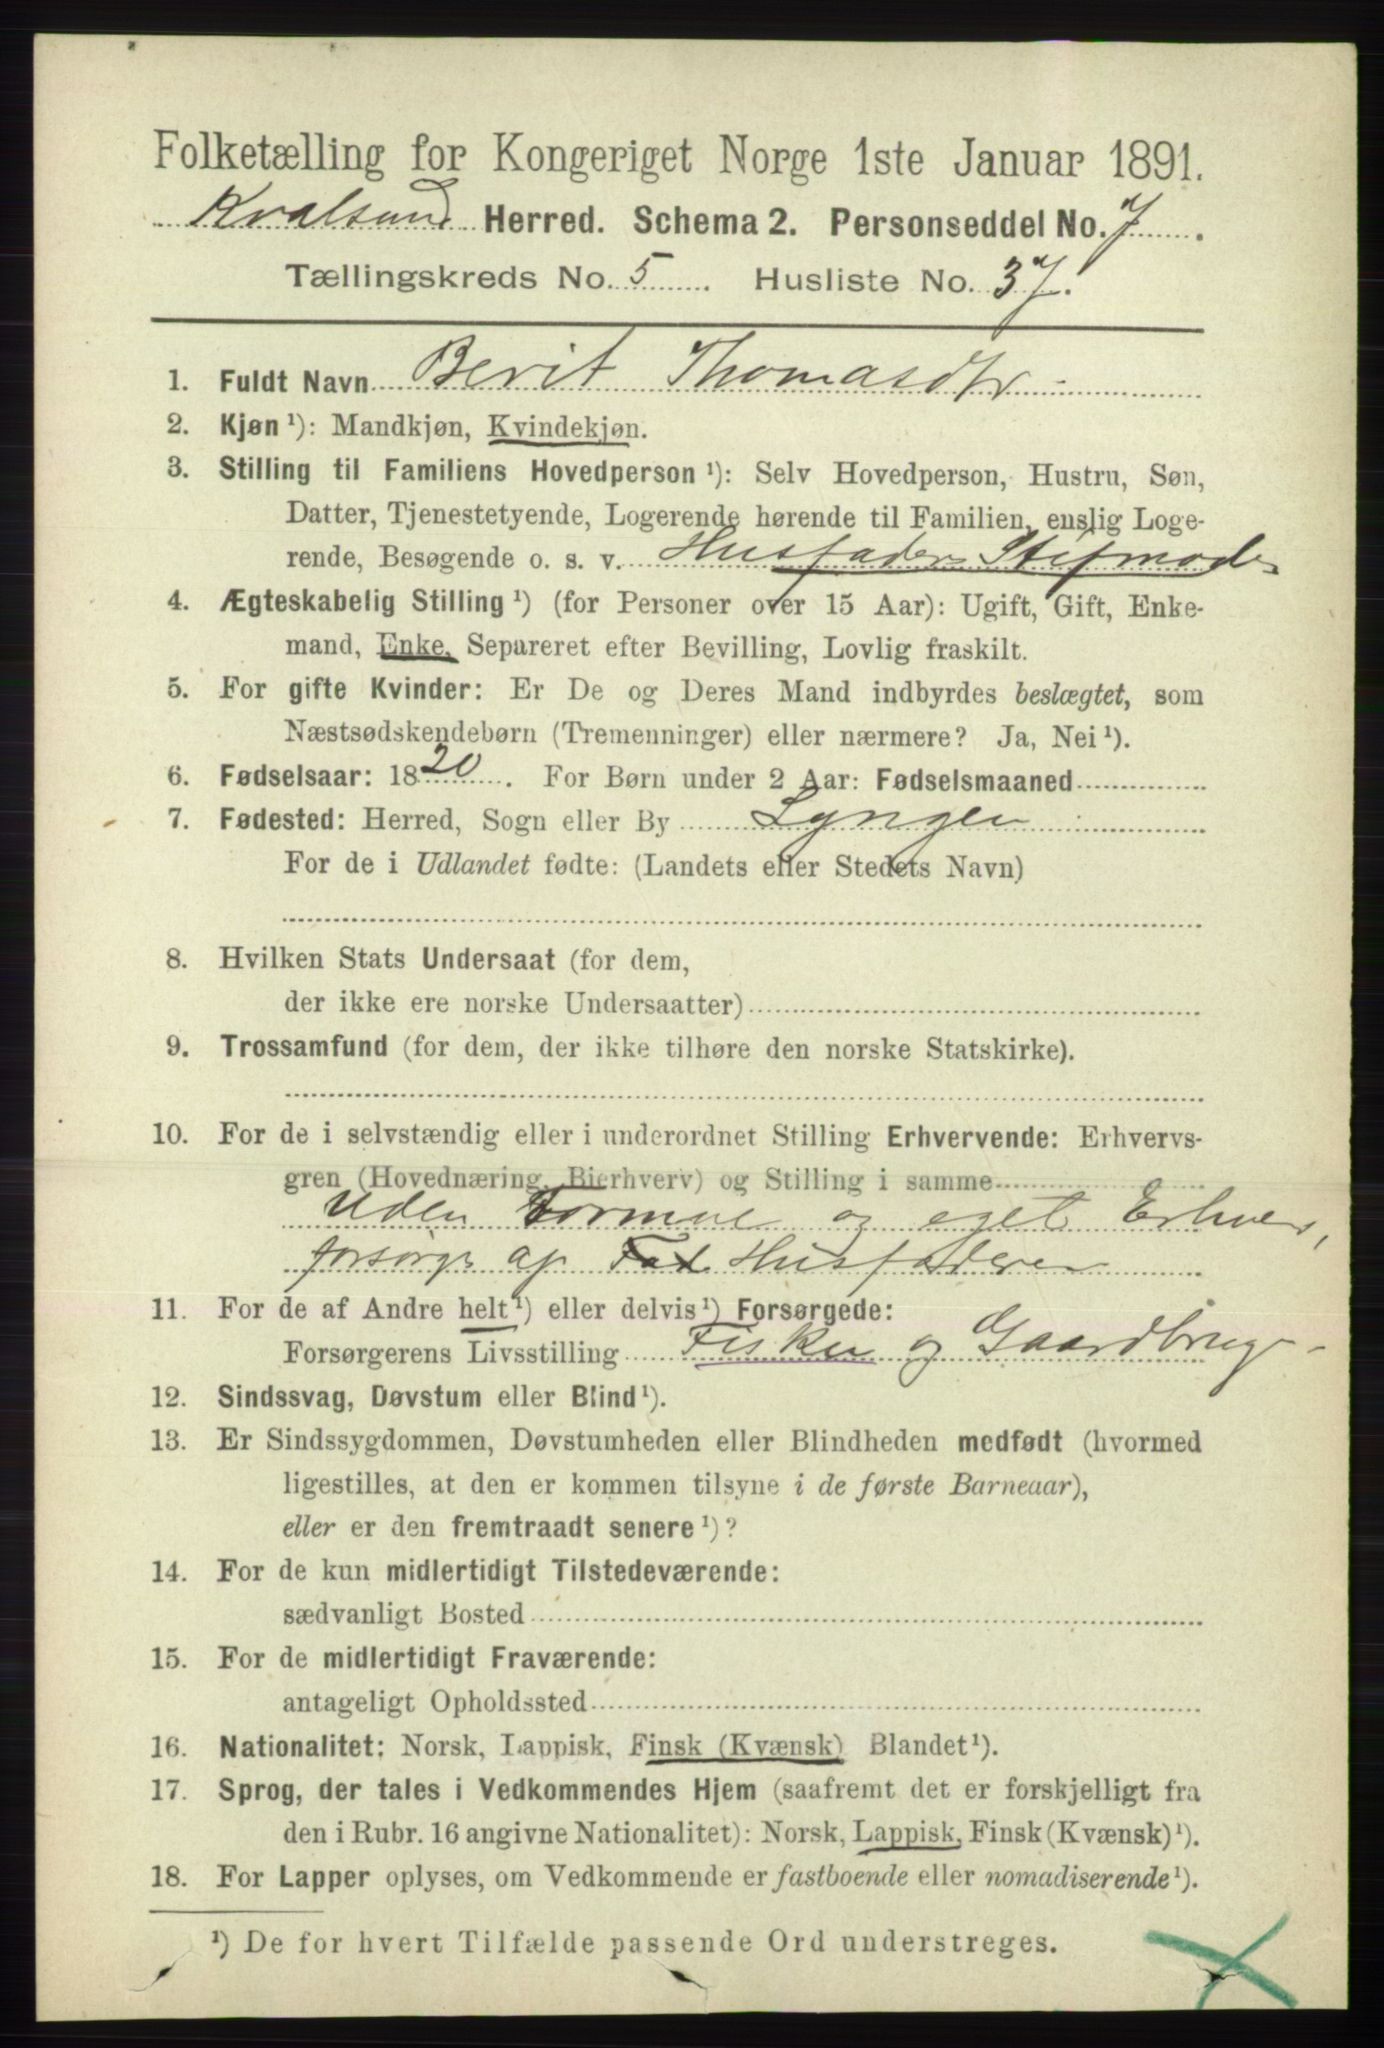 Folketælling for Kongeriget Norge 1ste Januar 1891.
Kvalsund Herred. Schema 2. Personseddel No. 7
Tællingskreds No. 5 Husliste No. 37.
1. Fuldt Navn Berit Thomasdtr
2. Kjøn ¹): Mandkjøn, Kvindekjøn.
3. Stilling til Familiens Hovedperson ¹): Selv Hovedperson, Hustru, Søn,
Datter, Tjenestetyende, Logerende hørende til Familien, enslig Loge-
rende, Besøgende o. s. v. Husfaders Stifmoder
4. Ægteskabelig Stilling ¹) (for Personer over 15 Aar): Ugift, Gift, Enke-
mand, Enke, Separeret efter Bevilling, Lovlig fraskilt.
5. For gifte Kvinder: Er De og Deres Mand indbyrdes beslægtet, som
Næstsødskendebørn (Tremenninger) eller nærmere? Ja, Nei ¹).
6. Fødselsaar: 1820. For Børn under 2 Aar: Fødselsmaaned
7. Fødested: Herred, Sogn eller By Lyngen
For de i Udlandet fødte: (Landets eller Stedets Navn)
8. Hvilken Stats Undersaat (for dem,
der ikke ere norske Undersaatter)
9. Trossamfund (for dem, der ikke tilhøre den norske Statskirke).
10. For de i selvstændig eller i underordnet Stilling Erhvervende: Erhvervs-
gren (Hovednæring, Bierhverv) og Stilling i samme
Uden Formue og eget Erhverv,
forsørges af Husfaderen
11. For de af Andre helt ¹) eller delvis ¹) Forsørgede:
Forsørgerens Livsstilling Fisker og Gaardbruger
12. Sindssvag, Døvstum eller Blind ¹).
13. Er Sindssygdommen, Døvstumheden eller Blindheden medfødt (hvormed
ligestilles, at den er kommen tilsyne i de første Barneaar),
eller er den fremtraadt senere ¹)?
14. For de kun midlertidigt Tilstedeværende:
sædvanligt Bosted
15. For de midlertidigt Fraværende:
antageligt Opholdssted
16. Nationalitet: Norsk, Lappisk, Finsk (Kvænsk) Blandet ¹).
17. Sprog, der tales i Vedkommendes Hjem (saafremt det er forskjelligt fra
den i Rubr. 16 angivne Nationalitet): Norsk, Lappisk, Finsk (Kvænsk) ¹).
18. For Lapper oplyses, om Vedkommende er fastboende eller nomadiserende ¹).
¹) De for hvert Tilfælde passende Ord understreges.